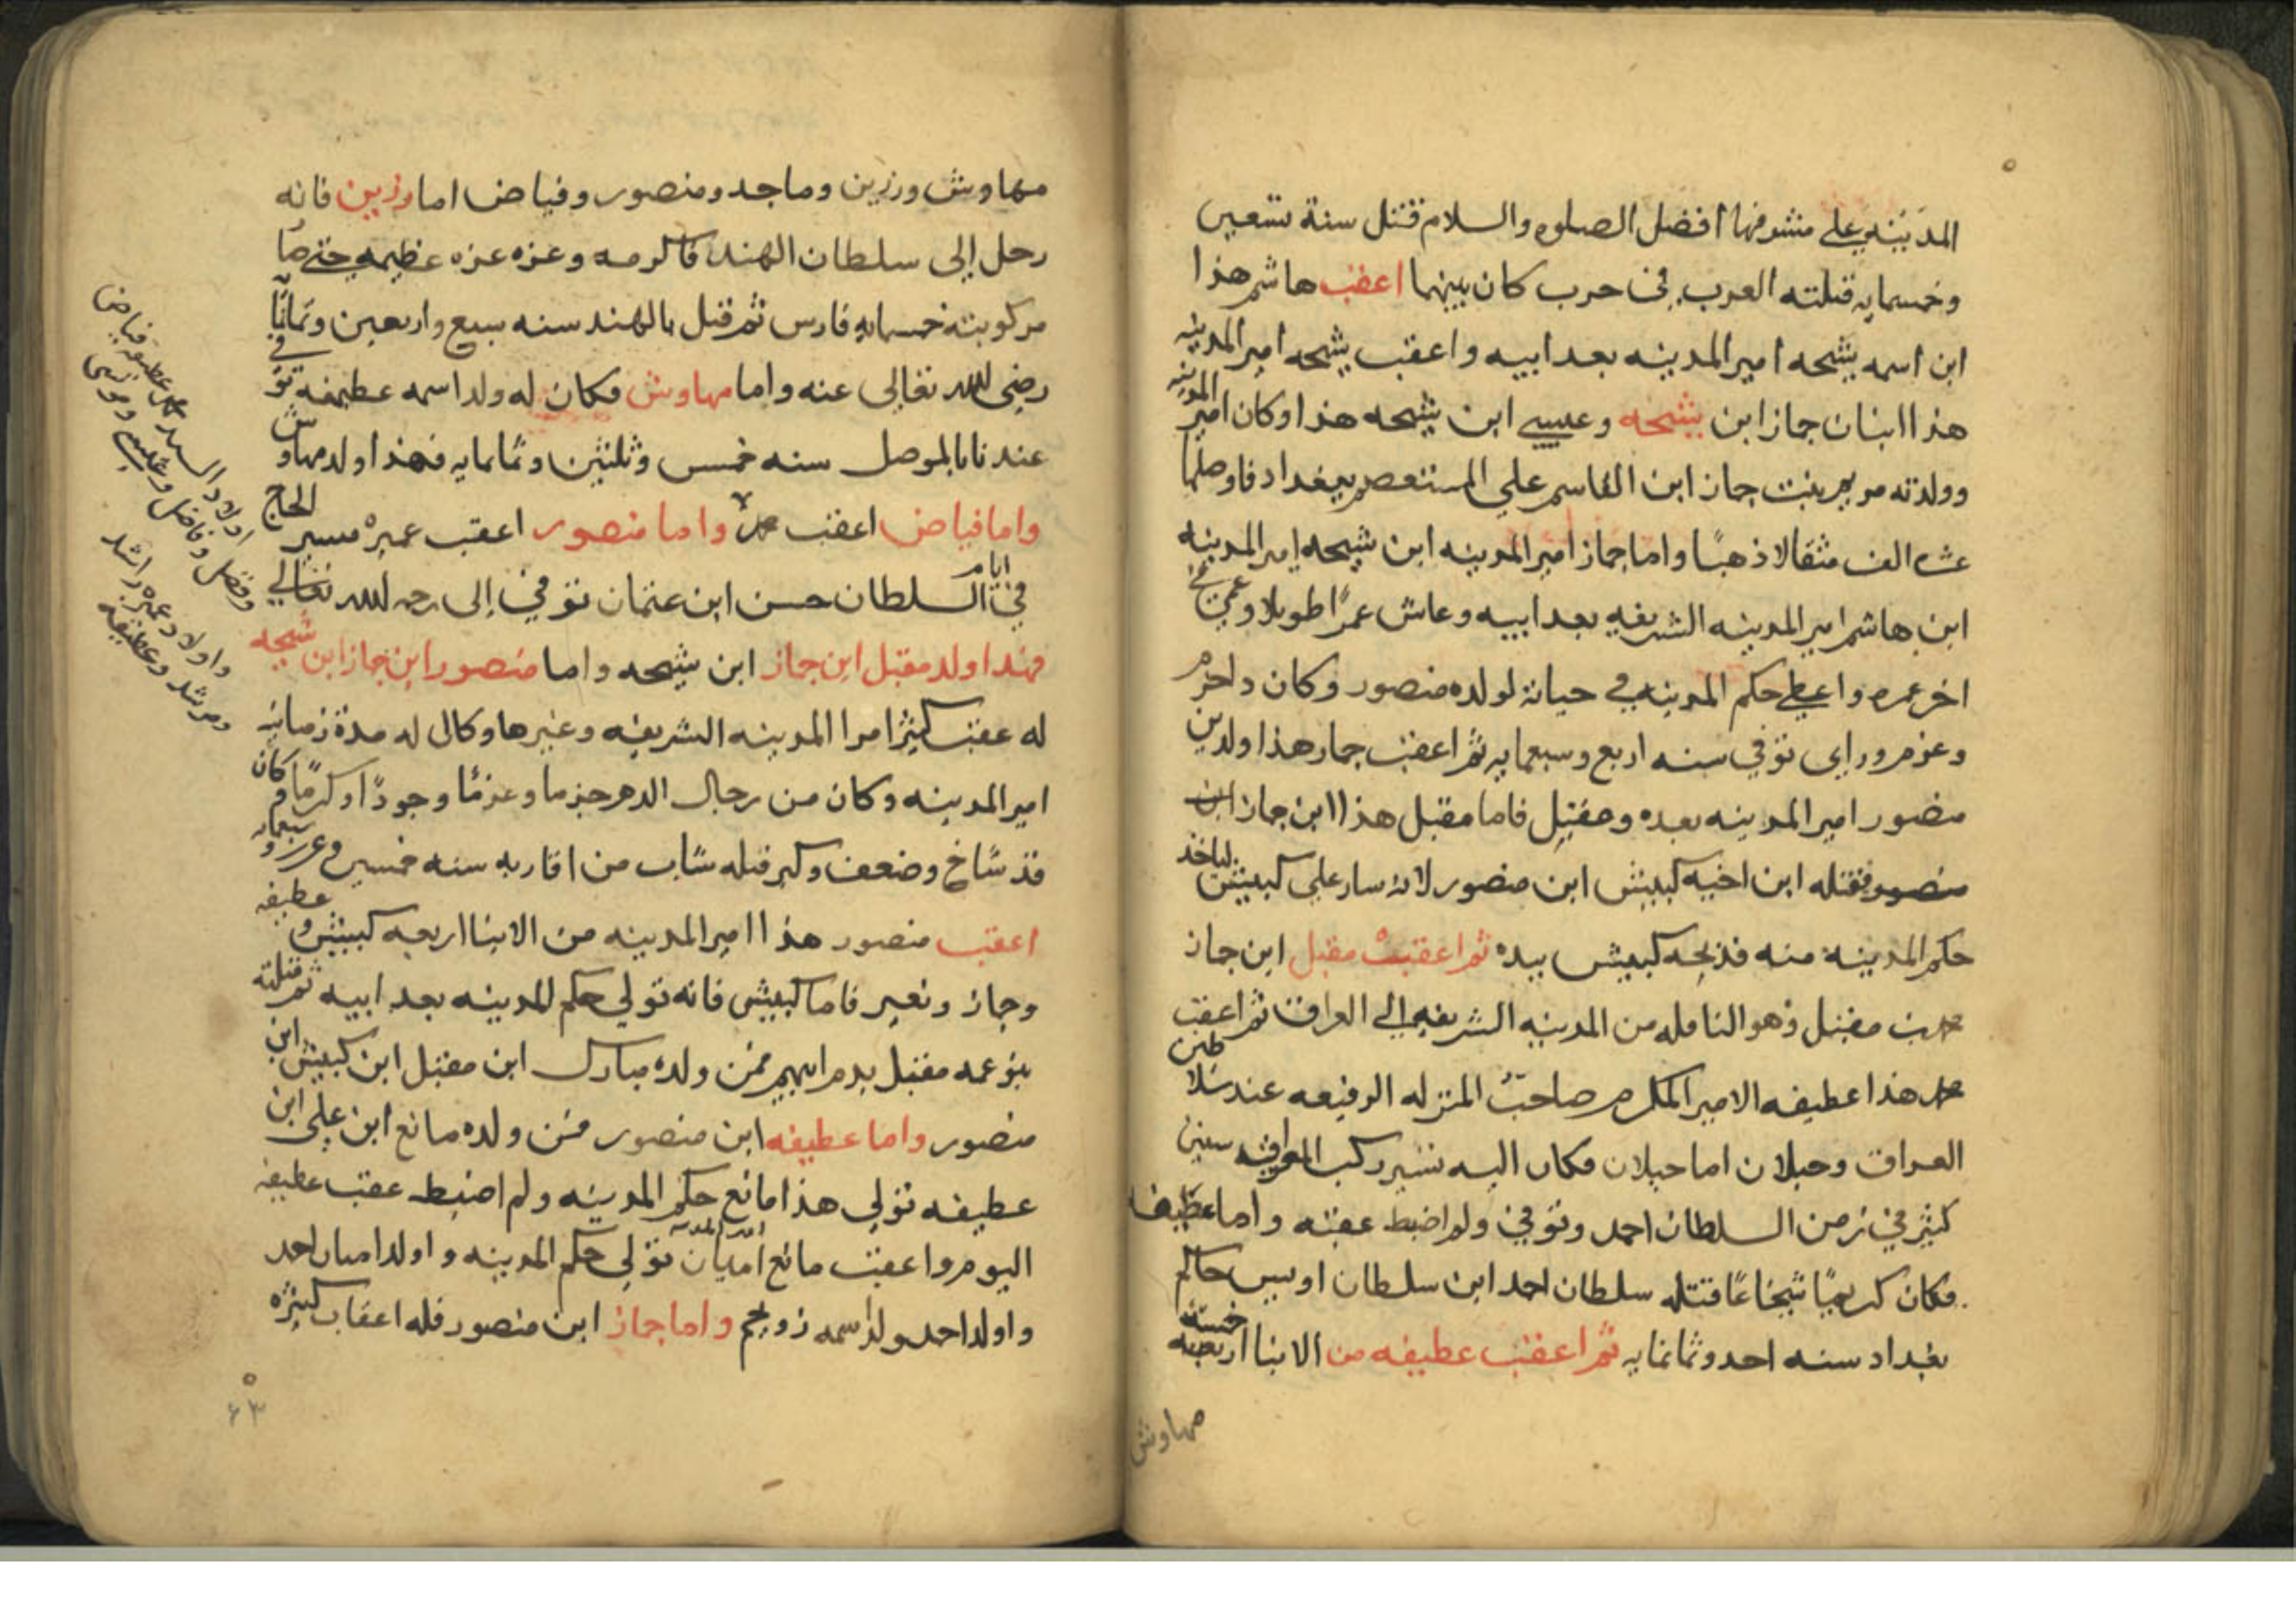 المدينة على مشرفها افضل الصلوه والسلام قتل سنة تسعين
وخمسمايه قتلته العرب في حرب كان بينهما اعقب هاشم هذا
ابن اسمه شيحه امير المدينه بعد ابيه واعقب شيحه امير المدينه
هذا ابنان جماز ابن شيحه وعيسى ابن شيحه هذا وكان امير المدينه
وولدته مريم بنت جماز ابن القاسم على المستعصم ببغداد فاوصلها
الف مثقالا ذهبًا واما جماز امير المدينه ابن شيحه امير المدينه
ابن هاشم امير المدينه الشريفه بعد ابيه وعاش عمرًا طويلا وعمي في
اخر عمره واعطى حكم المدينه في حياته لولده منصور وكان ذا حزم
وعزم وراى توفي سنه اربع وسبعمايه ثم اعقب جماز هذا ولدين
منصور امير المدينه بعده ومقبل فاما مقبل هذا ابن جماز ابن
منصور فقتله ابن اخيه كبيش ابن منصور لانه سار على كبيش لياخذ
حكم المدينة منه فذبحه كبيش بيده ثم اعقبت مقبل ابن جماز
محمد بن مقبل وهو الناقله من المدينه الشريفه الى العراق ثم اعقب
محمد هذا عطيفه الامير المكرم صاحب المنزله الرفيعه عند سلاطين
العراق وحيلان اما حيلان فكان اليه تسير ركب العراق سنين
كثير في زمن السلطان احمد وتوفي ولم اضبط عقبه واما عطيفه
فكان كريمًا شجاعًا قتله سلطان احمد ابن سلطان اويس حاكم
بغداد سنه احد وثمانمايه ثم اعقب عطيفه من الابنا اربعه خمسة
مهاوش
مهاوش ورزين وماجد ومنصور وفياض اما رزين فانه
رحل إلى سلطان الهند فاكرمه وعزه عزه عظيمه حتى صا
مركوبته خمسمايه فارس ثم قتل بالهند سنه سبع واربعين وثمانما
رضى الله تعالى عنه واما مهاوش فكان له ولد اسمه عطيفه توفي
عندنا بالموصل سنه خمس وثلثين وثمانمايه فهذا ولد مهاوش
واما فياض اعقب محمد واما منصور اعقب عميره مسير الحاج
في ايام السلطان حسن ابن عثمان توفي إلى رحمه الله تعالى
فهذا ولد مقبل ابن جماز ابن شيحه واما منصور ابن جماز ابن شيحه
له عقب كثيرًا امرا المدينه الشريفه وغيرها وكان له مدة زمانيه
امير المدينه وكان من رجال الدهر حزما وعزمًا وجودًا وكرمًا وكان
قد شاخ وضعف وكبر قتله شاب من اقاربه سنه خمسه وعشرين وسبعمايه
اعقب منصور هذا امير المدينه من الابنا اربعه كبيش وعطيفه
وجماز ونعير فاما كبيش فانه تولى حكم المدينه بعد ابيه ثم قتلته
بنو عمه مقبل بدم ابيهم فمن ولده مبارك ابن مقبل ابن كبيش ابن
منصور واما عطيفه ابن منصور فمن ولده مانع ابن علي ابن
عطيفه تولى هذا مانع حكم المدينه ولم اضبط عقب عطيفه
اليوم واعقب مانع اميان امير المدينه تولى حكم المدينه واولد اميان احمد
واولد احمد ولد اسمه زويحم واما جماز ابن منصور فله اعقاب كثيره
اولاد السيد محمد بن عطيفه فياض
وفضل وفاضل
واولاد عميره راشد
ومرشد وعطيفه
٦٣